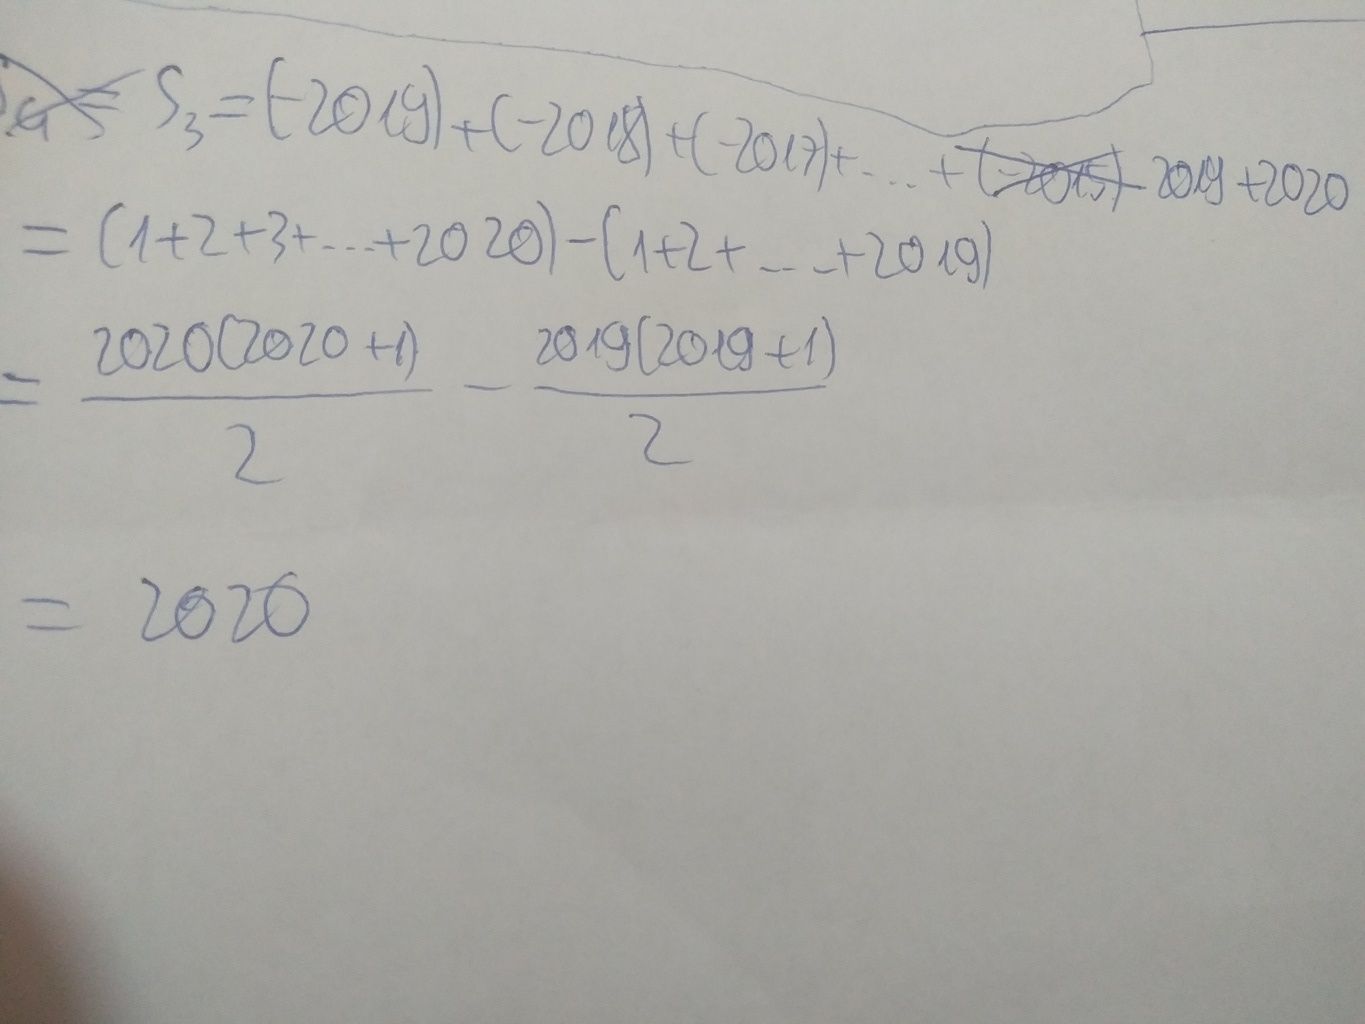 S₃ = (-2019) + (-2018) + (-2017) + .... + 2019 + 2020
= (1+2+3+....+2020) - (1+2+....+2019)
= 2020(2020+1)/2 - 2019(2019+1)/2
= 2020